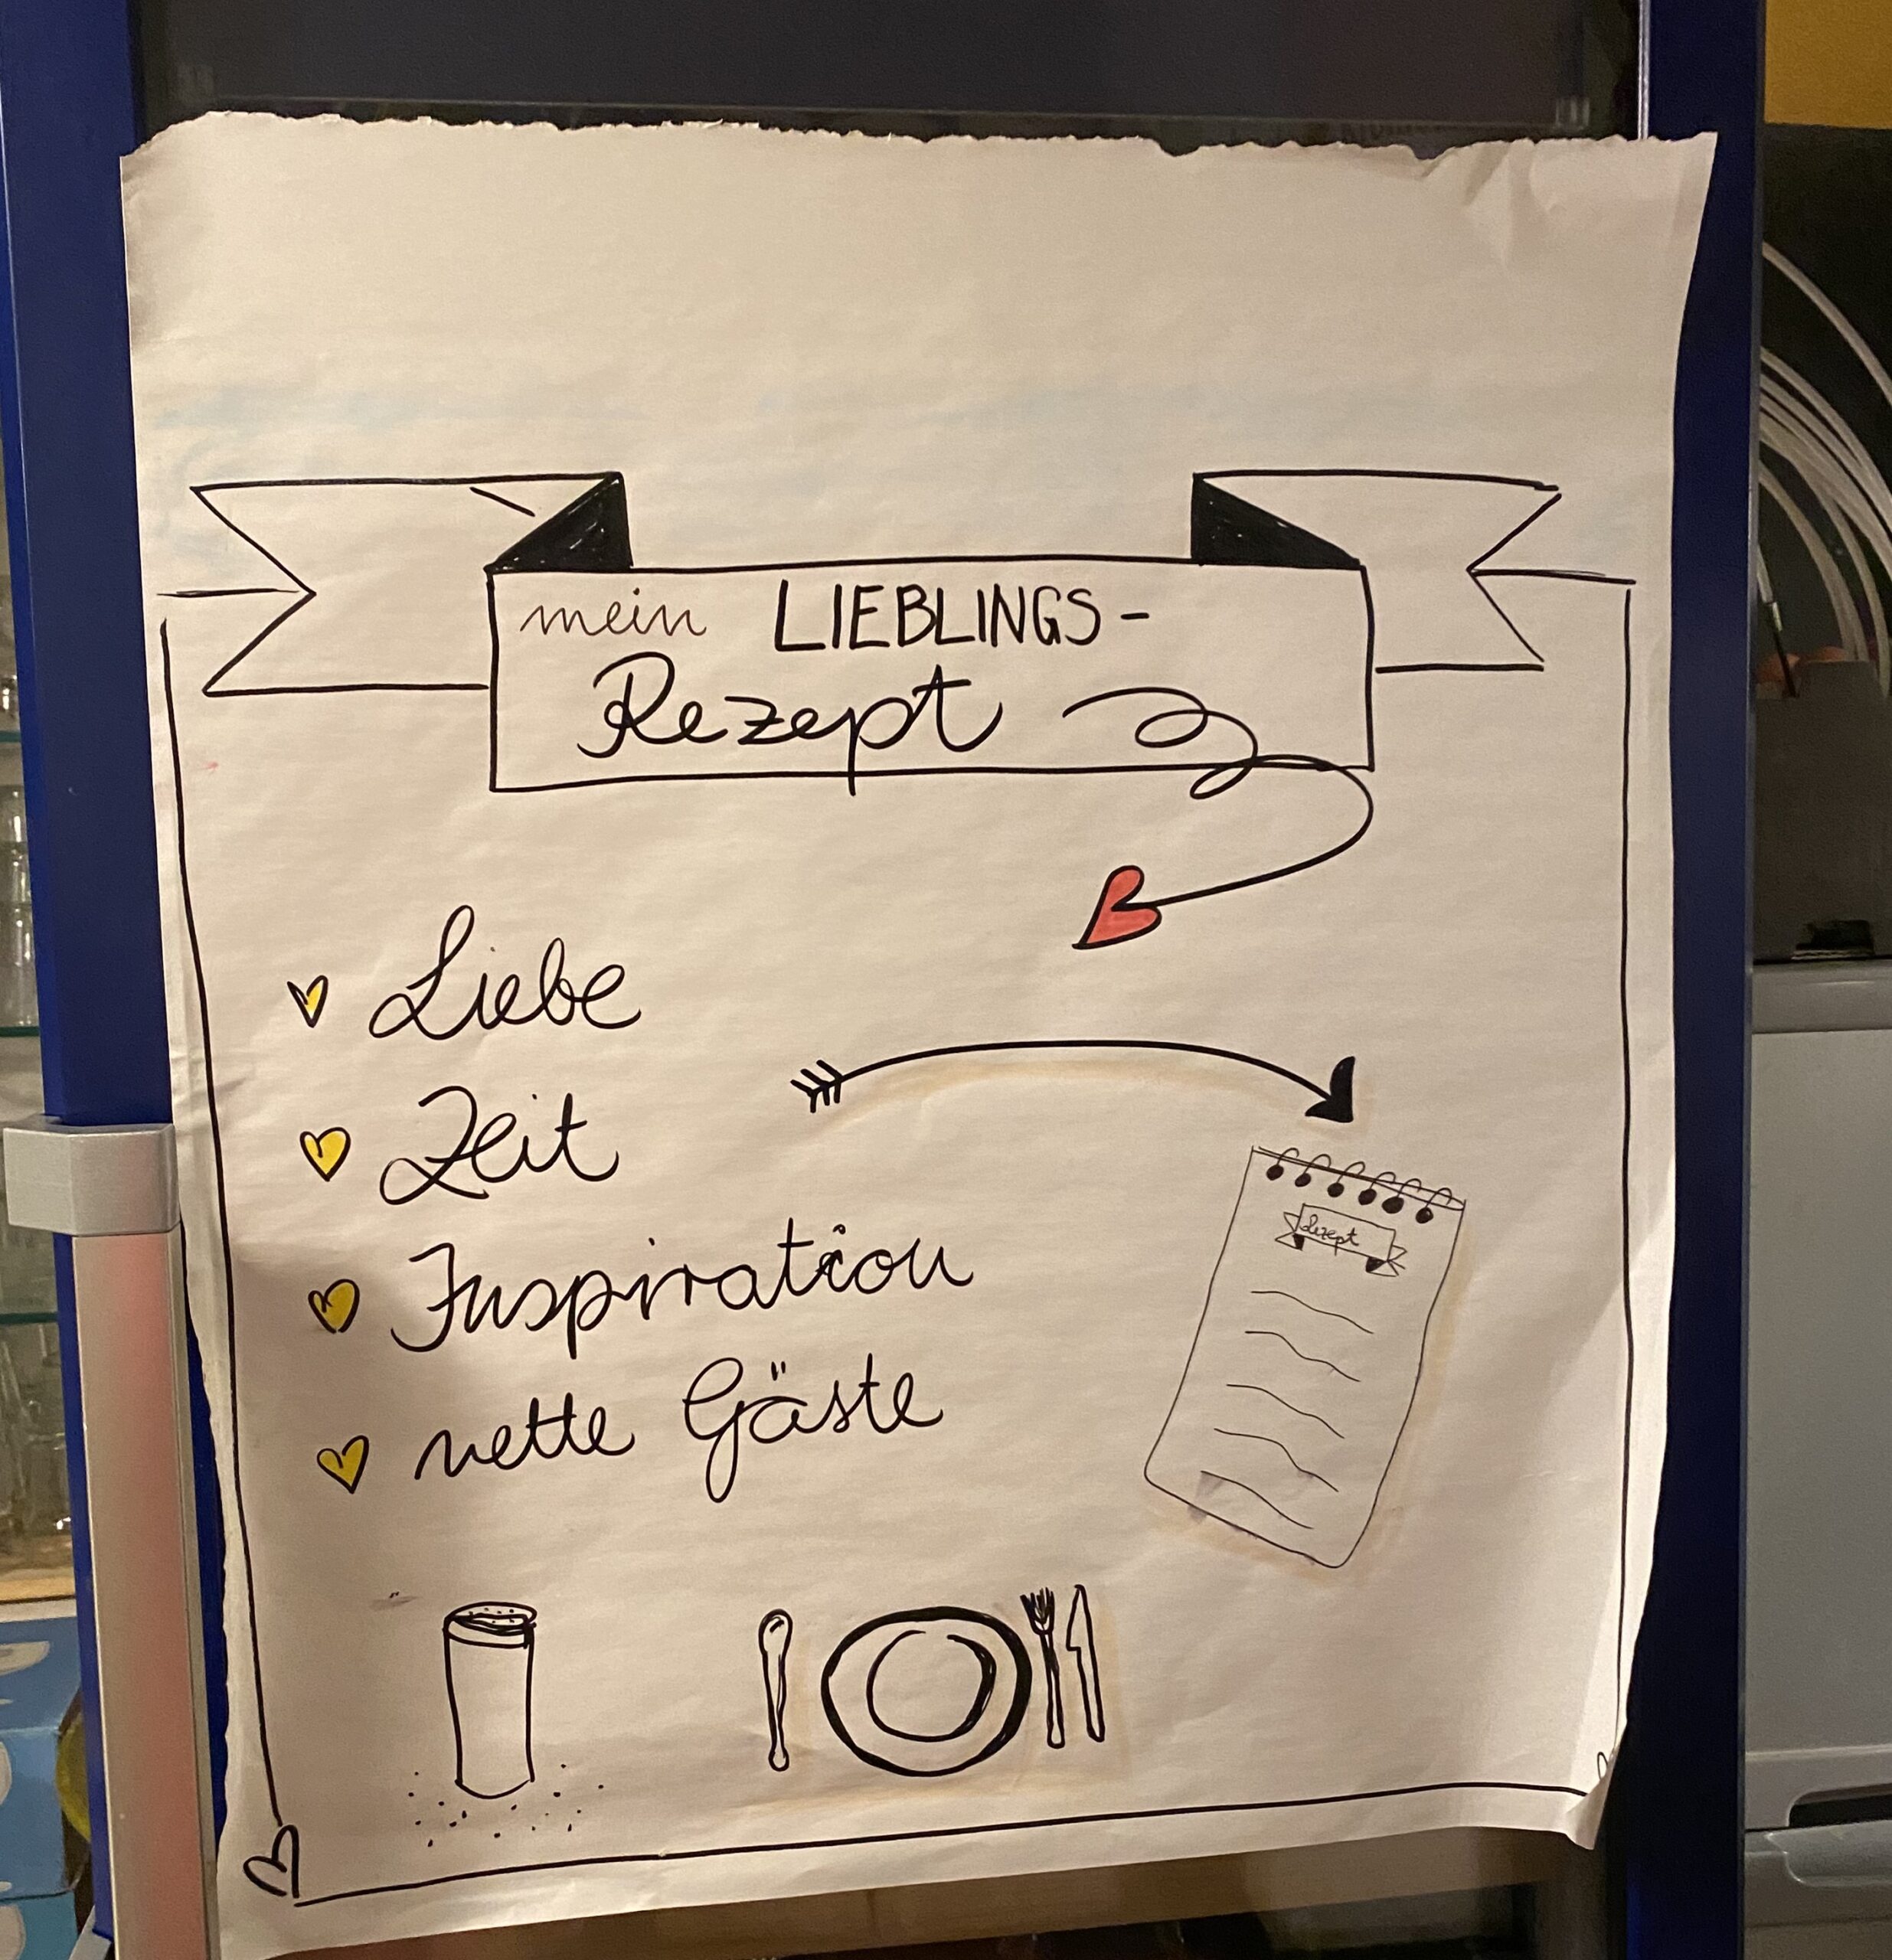 mein LIEBLINGS-
Rezept
Liebe
Zeit
Inspiration
nette Gäste
Rezept